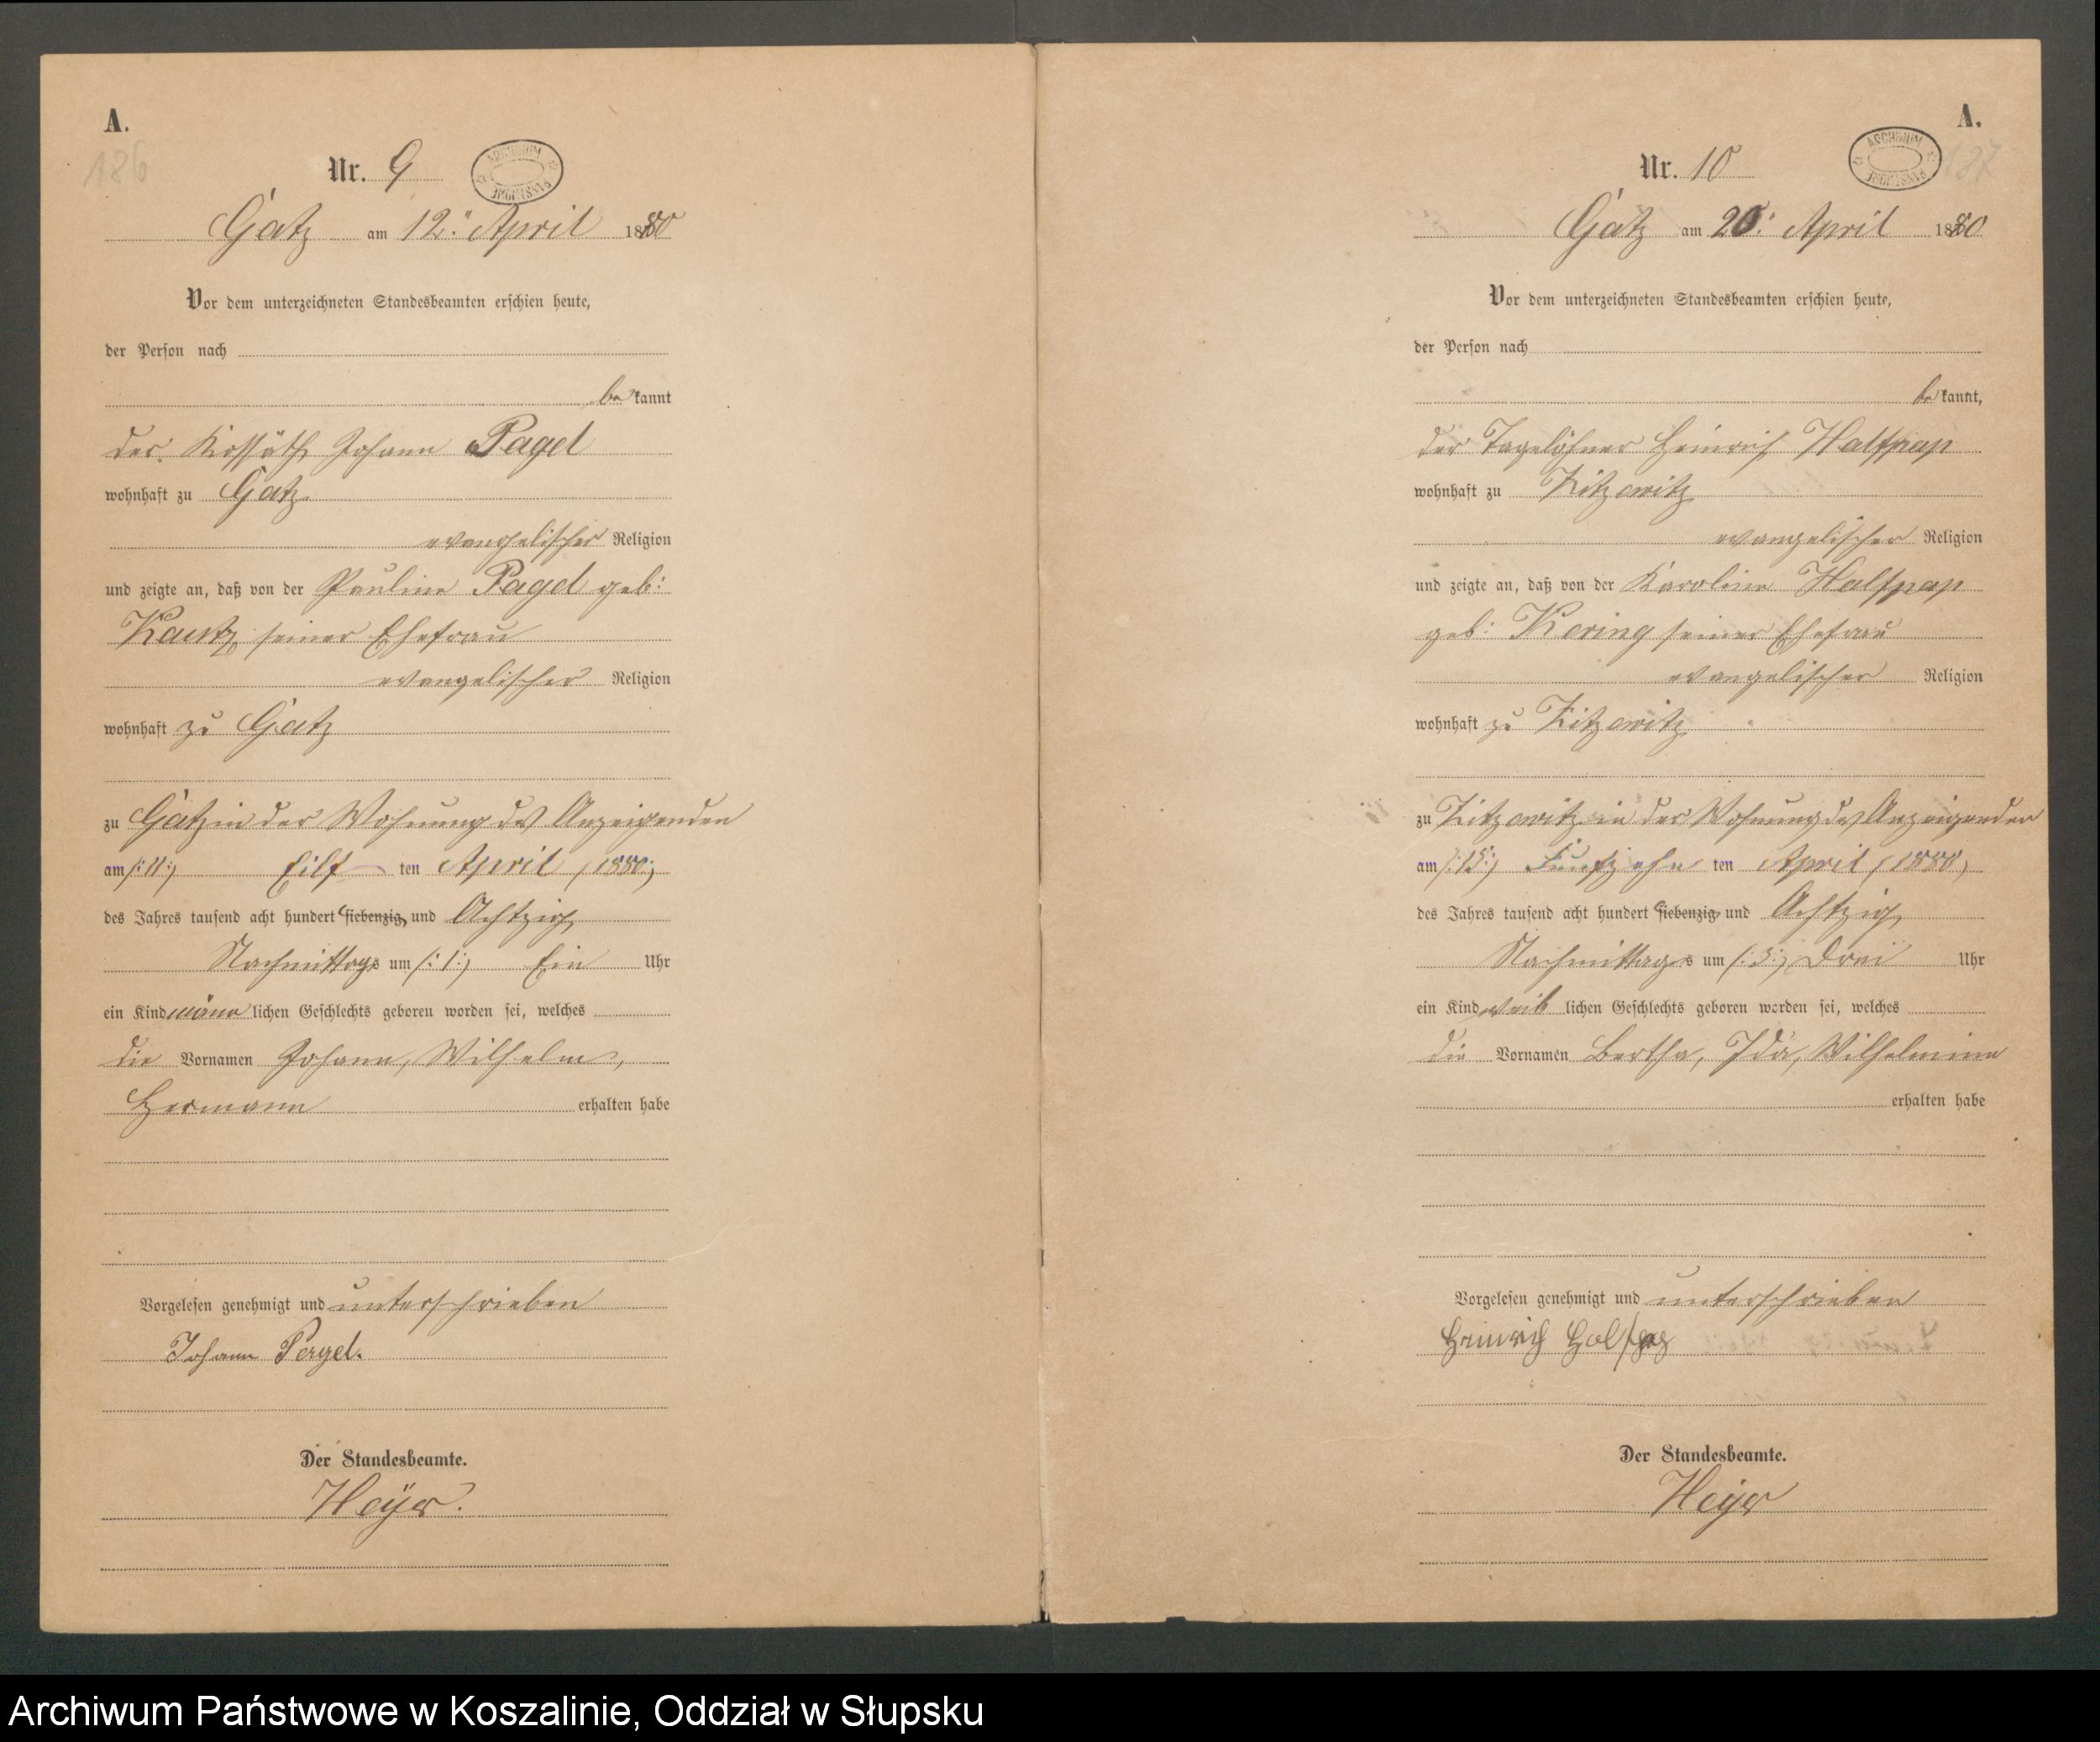 A.
186
Nr. 9
ARCHIWUM PAŃSTWOWE
Gatz am 12. April 1880
Vor dem unterzeichneten Standesbeamten erschien heute,
der Person nach
be kannt
der Kossäth Johann Pagel
wohnhaft zu Gatz
evangelischer Religion
und zeigte an, daß von der Pauline Pagel geb:
Kautz seiner Ehefrau
evangelischer Religion
wohnhaft zu Gatz
zu Gatz in der Wohnung des Anzeigenden
am /:11:/ Eilf ten April /1880:/
des Jahres tausend acht hundert siebenzig und Achtzig
Nachmittags um /:1:/ Ein Uhr
ein Kind männlichen Geschlechts geboren worden sei, welches
die Vornamen Johann, Wilhelm,
Hermann erhalten habe
Vorgelesen genehmigt und unterschrieben
Johann Pagel.
Der Standesbeamte.
Heÿer.
A.
187
Nr. 10
ARCHIWUM PAŃSTWOWE
Gatz am 20. April 1880
Vor dem unterzeichneten Standesbeamten erschien heute,
der Person nach
be kannt,
der Tagelöhner Heinrich Halfpap
wohnhaft zu Zitzewitz
evangelischer Religion
und zeigte an, daß von der Karoline Halfpap
geb: Kering seiner Ehefrau
evangelischer Religion
wohnhaft zu Zitzewitz
zu Zitzewitz in der Wohnung des Anzeigenden
am /:15:/ Funfzehn ten April /1880/
des Jahres tausend acht hundert siebenzig und Achtzig
Nachmittags um /:3:/ Drei Uhr
ein Kind weiblichen Geschlechts geboren worden sei, welches
die Vornamen Bertha, Ida, Wilhelmine
erhalten habe
Vorgelesen genehmigt und unterschrieben
Heinrich Halfpap
Der Standesbeamte.
Heÿer
Archiwum Państwowe w Koszalinie, Oddział w Słupsku